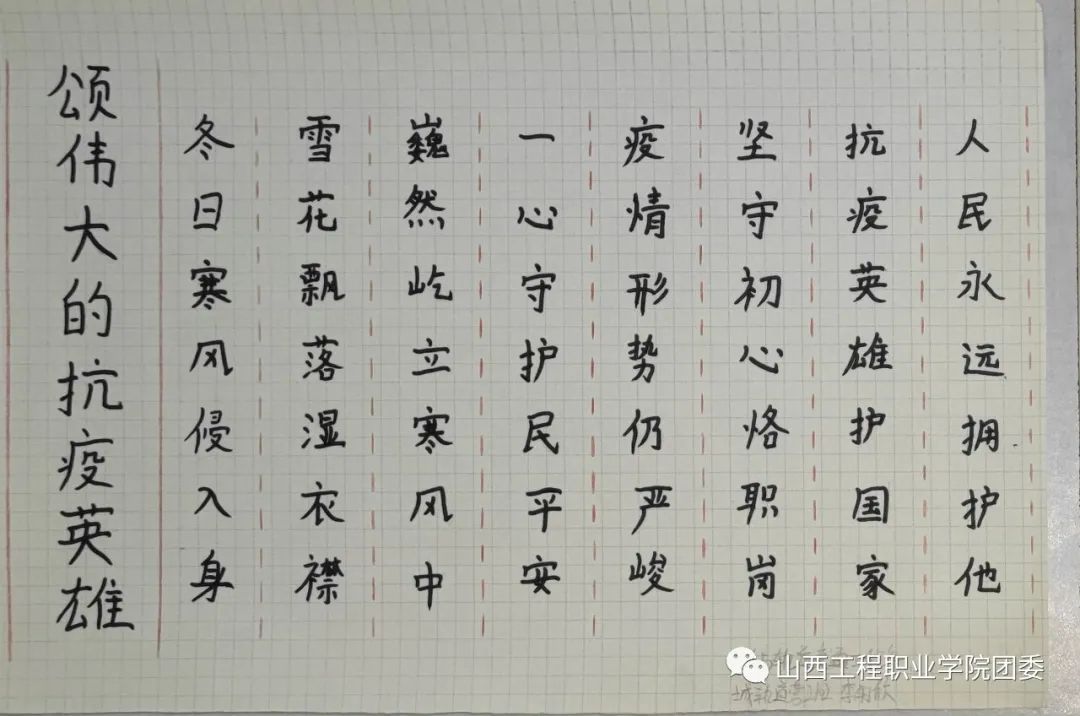 颂伟大的抗疫英雄
冬日寒风侵入身
雪花飘落湿衣襟
巍然屹立寒风中
一心守护民平安
疫情形势仍严峻
坚守初心烙职岗
抗疫英雄护国家
人民永远拥护他
山西工程职业学院团委